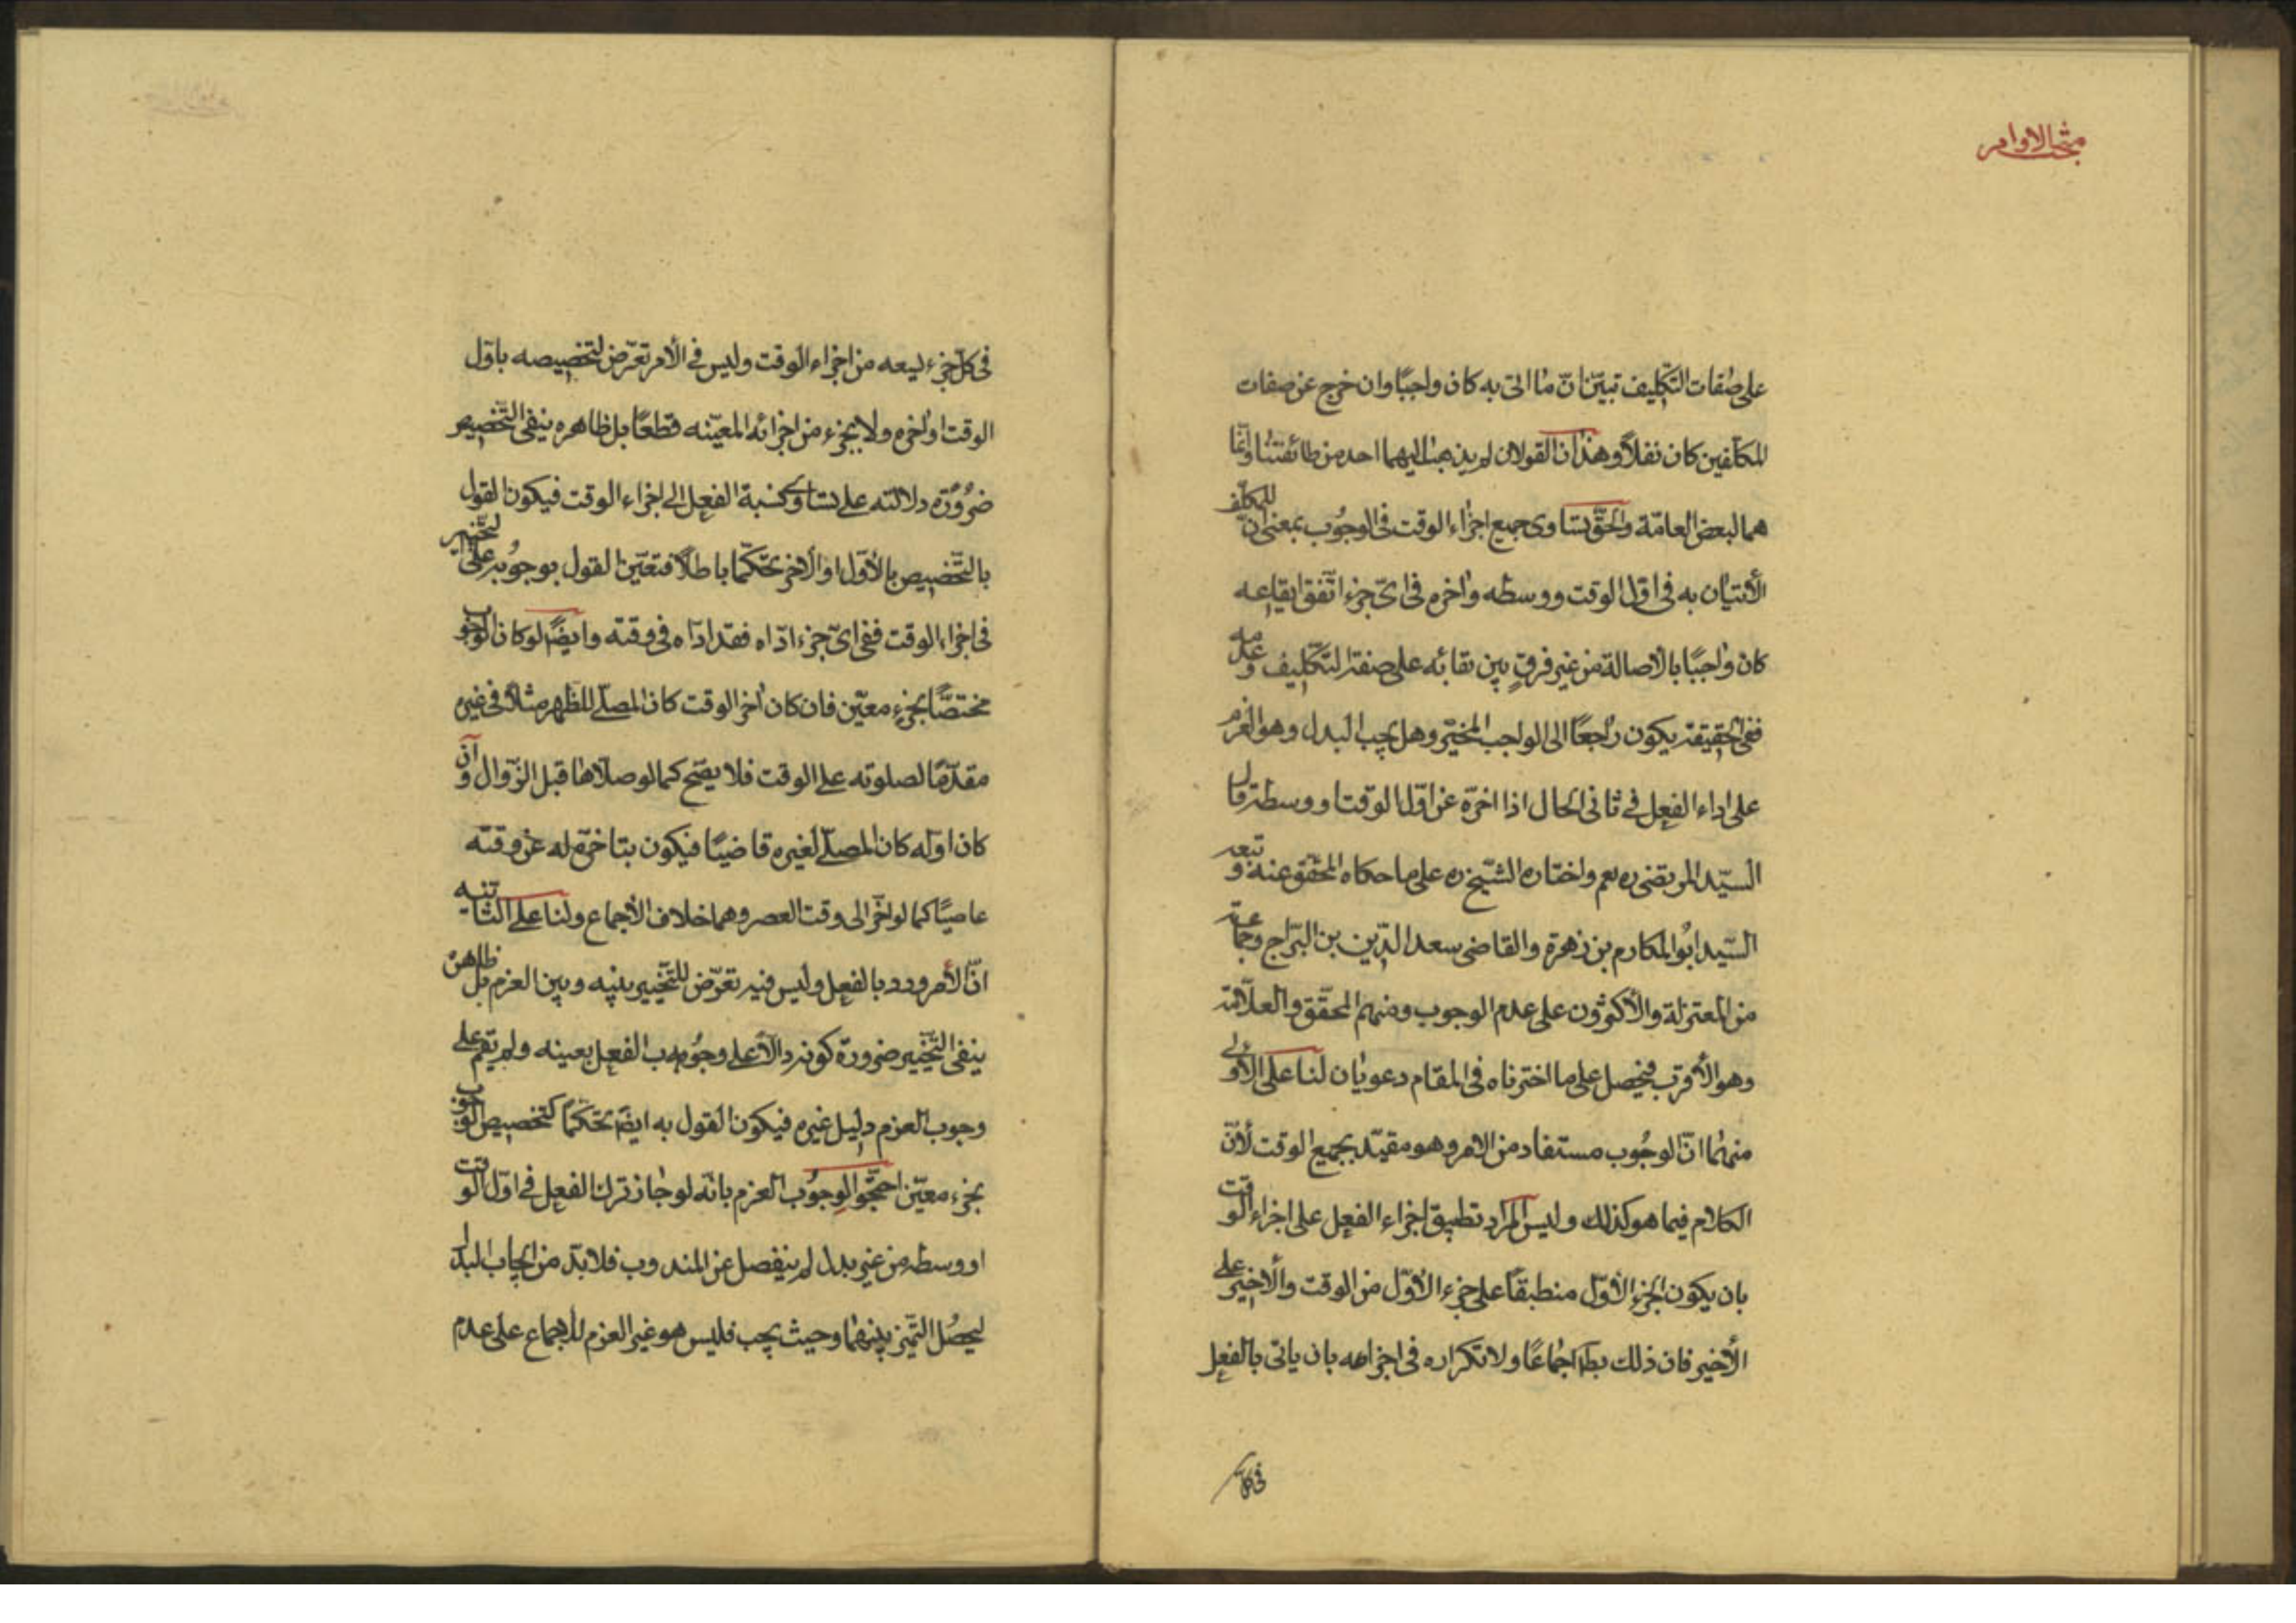 مبحث الاوامر
على صفات التكليف تبيّن انّ ما اتى به كان واجبًا وان خرج عن صفات
المكلّفين كان نفلاً وهذان القولان لم يذهب اليهما احد من طائفتنا وانّما
هما لبعض العامّة والحقّ تساوى جميع اجزاء الوقت فى الوجوب بمعنى انّ للمكلّف
الأتيان به فى اوّل الوقت ووسطه واخره فى اىّ جزء اتّفق ايقاعه
كان واجبًا بالاصالة من غير فرقٍ بين بقائه على صفة التكليف وعدمه
ففى الحقيقة يكون راجعًا الى الواجب المخيّر وهل يجب البدل وهو العزم
على اداء الفعل فى ثانى الحال اذا اخرّه عن اوّل الوقت ووسطه قال
السيّد المرتضى ره نعم واختاره الشّيخ ره على ما حكاه المحقّق عنه وتبعه
السّيد ابو المكارم بن زهرة والقاضى سعد الدّين بن البرّاج وجماعة
من المعتزلة والأكثرون على عدم الوجوب ومنهم المحقّق والعلاّمة
وهو الأقرب فيحصل على ما اخترناه فى المقام دعويان لنا على الأولى
منهما انّ الوجوب مستفاد من الامر وهو مقيّد بجميع الوقت لأنّ
الكلام فيما هو كذلك وليس المراد تطبيق اجزاء الفعل على اجزاء الوقت
بان يكون الجزء الأوّل منطبقًا على جزء الأوّل من الوقت والأخير على
الأخير فان ذلك بط اجماعًا ولا تكراره فى اجزاءه بان ياتى بالفعل
فى كلّ
فى كلّ جزء يسعه من اجزاء الوقت وليس فى الأمر تعرّض لتخصيصه باوّل
الوقت او اخره ولا بجزء من اجزائه المعيّنه قطعًا بل ظاهره ينفى التّخصيص
ضرورة دلالته على تساوى نسبة الفعل الى اجزاء الوقت فيكون القول
بالتّخصيص بالأوّل او الأخر تحكّما باطلاً فتعيّن القول بوجوبه على التّخيير
فى اجزاء الوقت ففى اىّ جزء ادّاه فقد ادّاه فى وقته وايضًا لو كان الوجوب
مختصًّا بجزء معيّن فان كان اخر الوقت كان المصلّى للظّهر مثلاً فى غيره
مقدّمًا لصلوته على الوقت فلا يصّح كما لو صلاّها قبل الزّوال وان
كان اوّله كان المصلّى لغيره قاضيًا فيكون بتاخيره له عن وقته
عاصيًا كما لو اخّر الى وقت العصر وهما خلاف الأجماع ولنا على الثّانيه
انّ الأمر ورد بالفعل وليس فيه تعرّض للتّخيير بينه وبين العزم بل ظاهره
ينفى التّخيير ضرورة كونه دالاّ على وجوب الفعل بعينه ولم يقم على
وجوب العزم دليل غيره فيكون القول به ايضًا تحكّمًا كتخصيص الوجوب
بجزء معيّن احتجّوا لوجوب العزم بانّه لو جاز ترك الفعل فى اوّل الوقت
او وسطه من غير بدل لم ينفصل عن المندوب فلابدّ من ايجاب البدل
ليحصل التّميّز بينهما وحيث يجب فليس هو غير العزم للأجماع على عدم